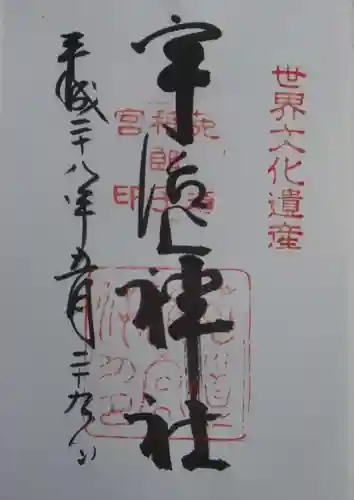 世界文化遺産
宇治上神社
平成二十八年五月二十九日
菟道
稚郎子
宮印